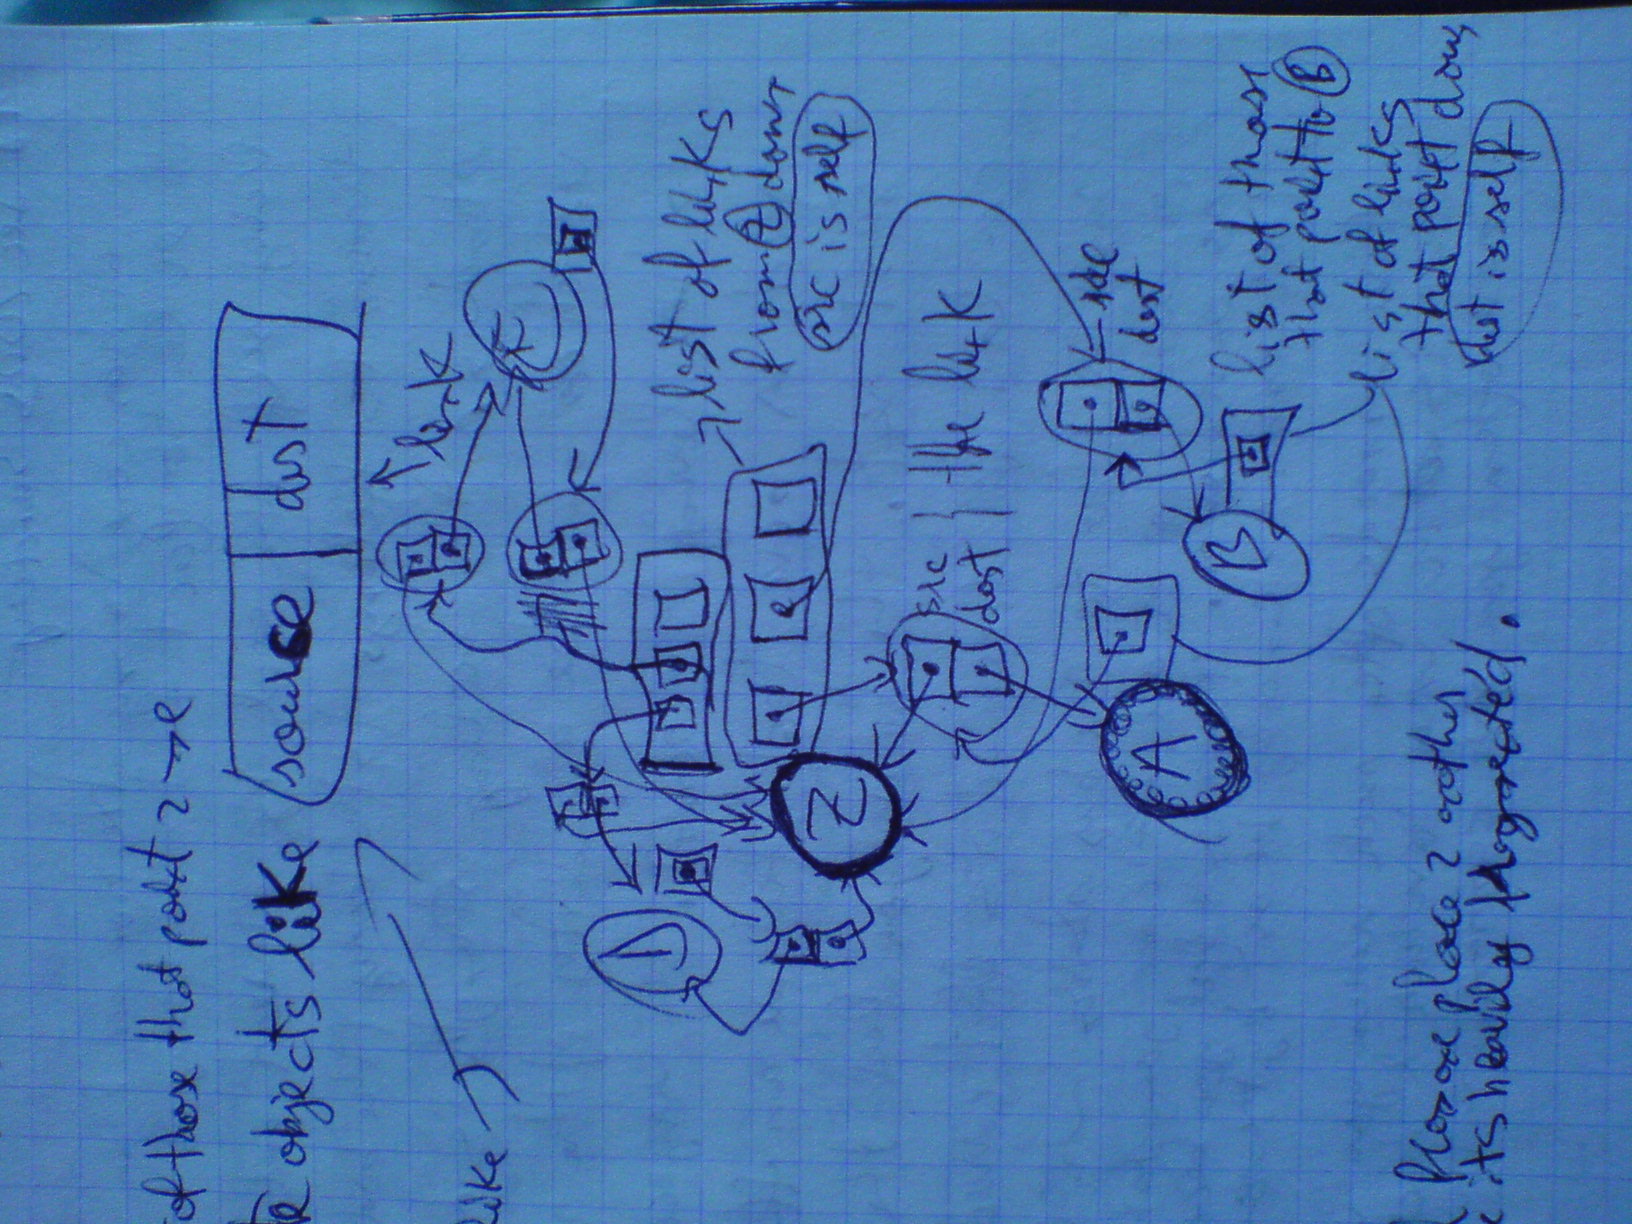 of those that point 2 →
objects like
source | dest
link
like
E
list of links
from Z down
src is self
D
Z
src
dest
the link
A
B
dest
list of those
that point to B
list of links
that point down
dest is self
place 2 another
its heavily fragmented.